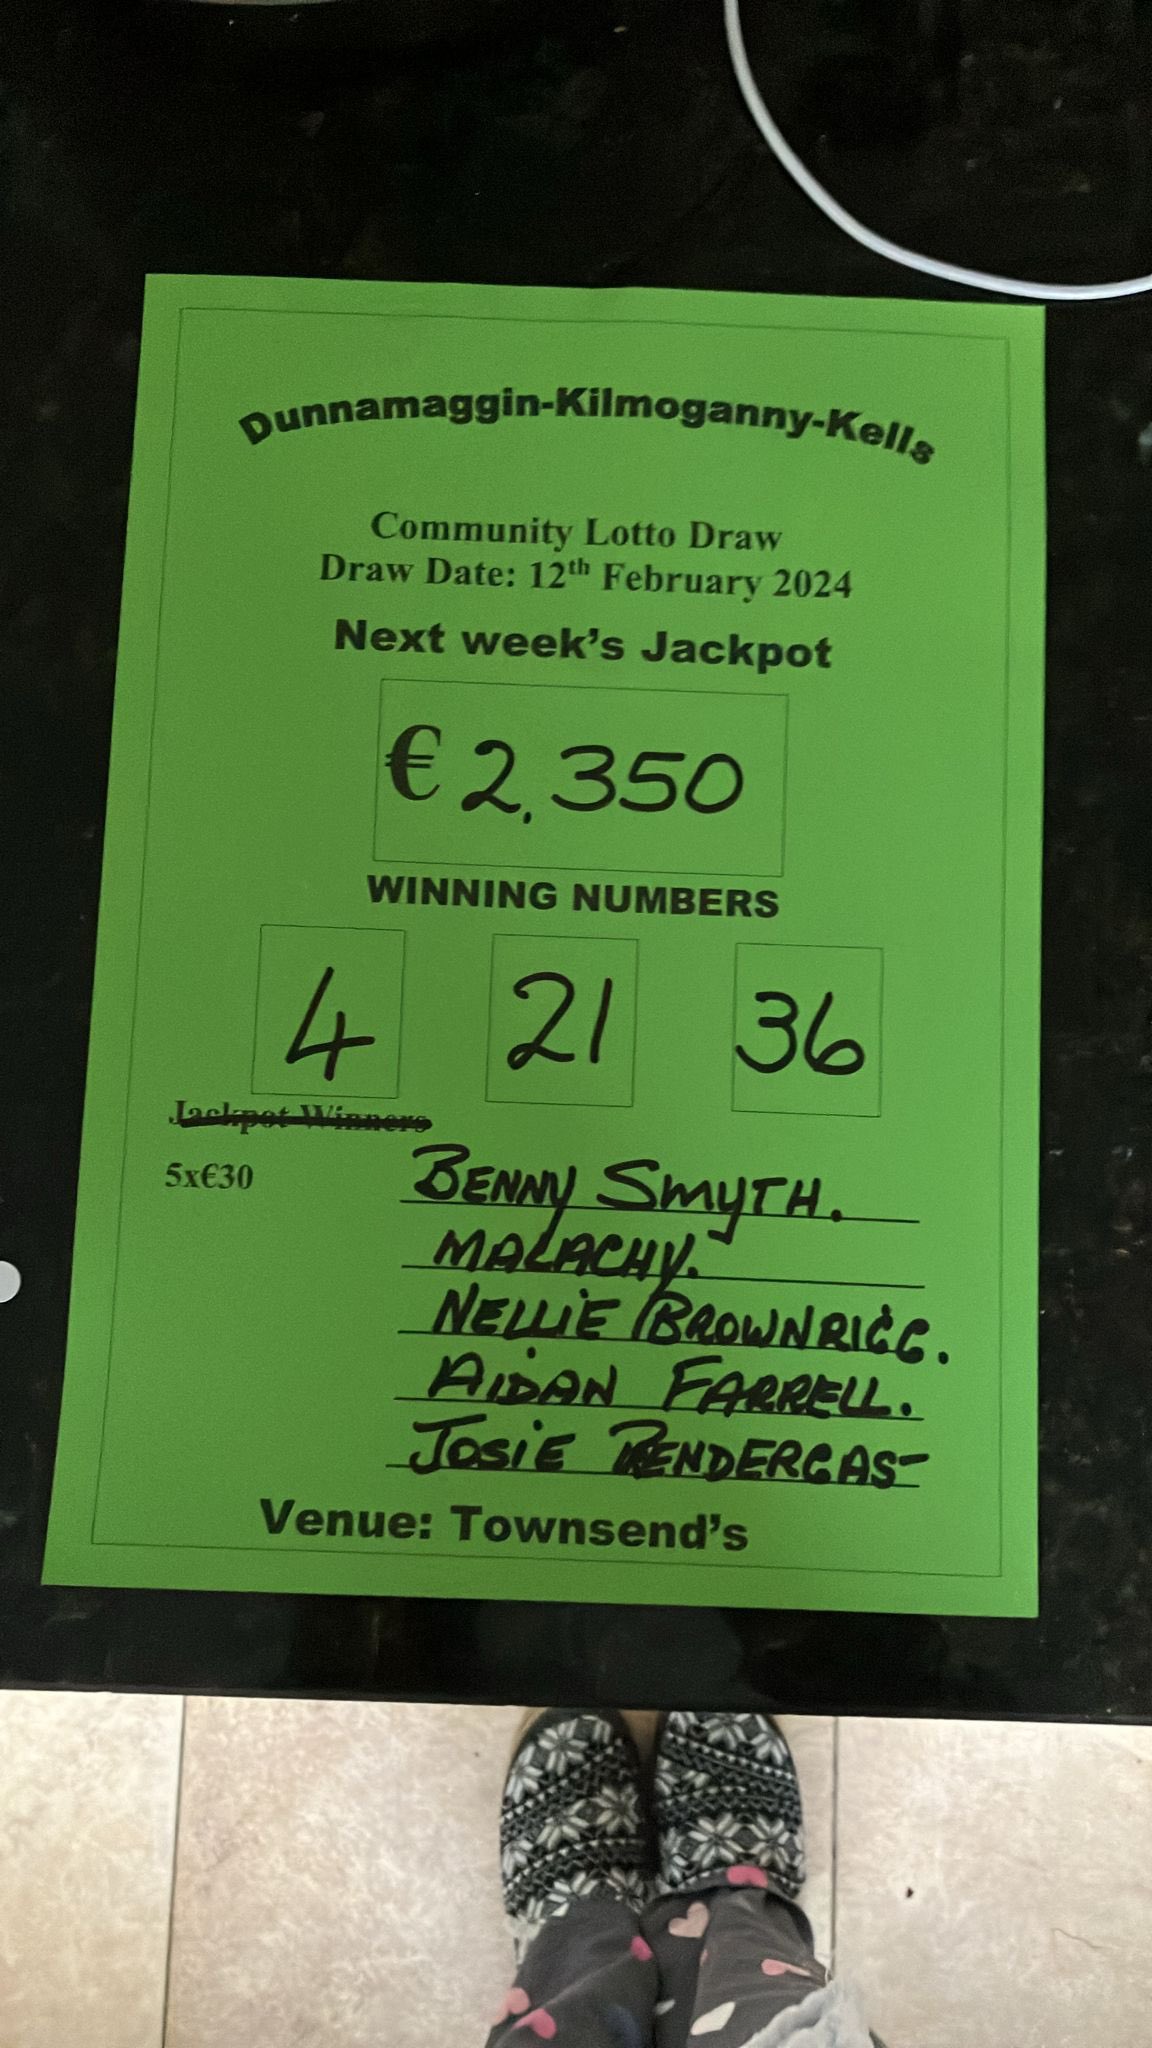 Dunnamaggin-Kilmoganny-Kells
Community Lotto Draw
Draw Date: 12th February 2024
Next week's Jackpot
€ 2,350
WINNING NUMBERS
4 21 36
Jackpot Winners
5x€30 BENNY SMYTH.
MALACHY.
NELLIE BROWNRIGG.
AIDAN FARRELL.
JOSIE PENDERGAST
Venue: Townsend's